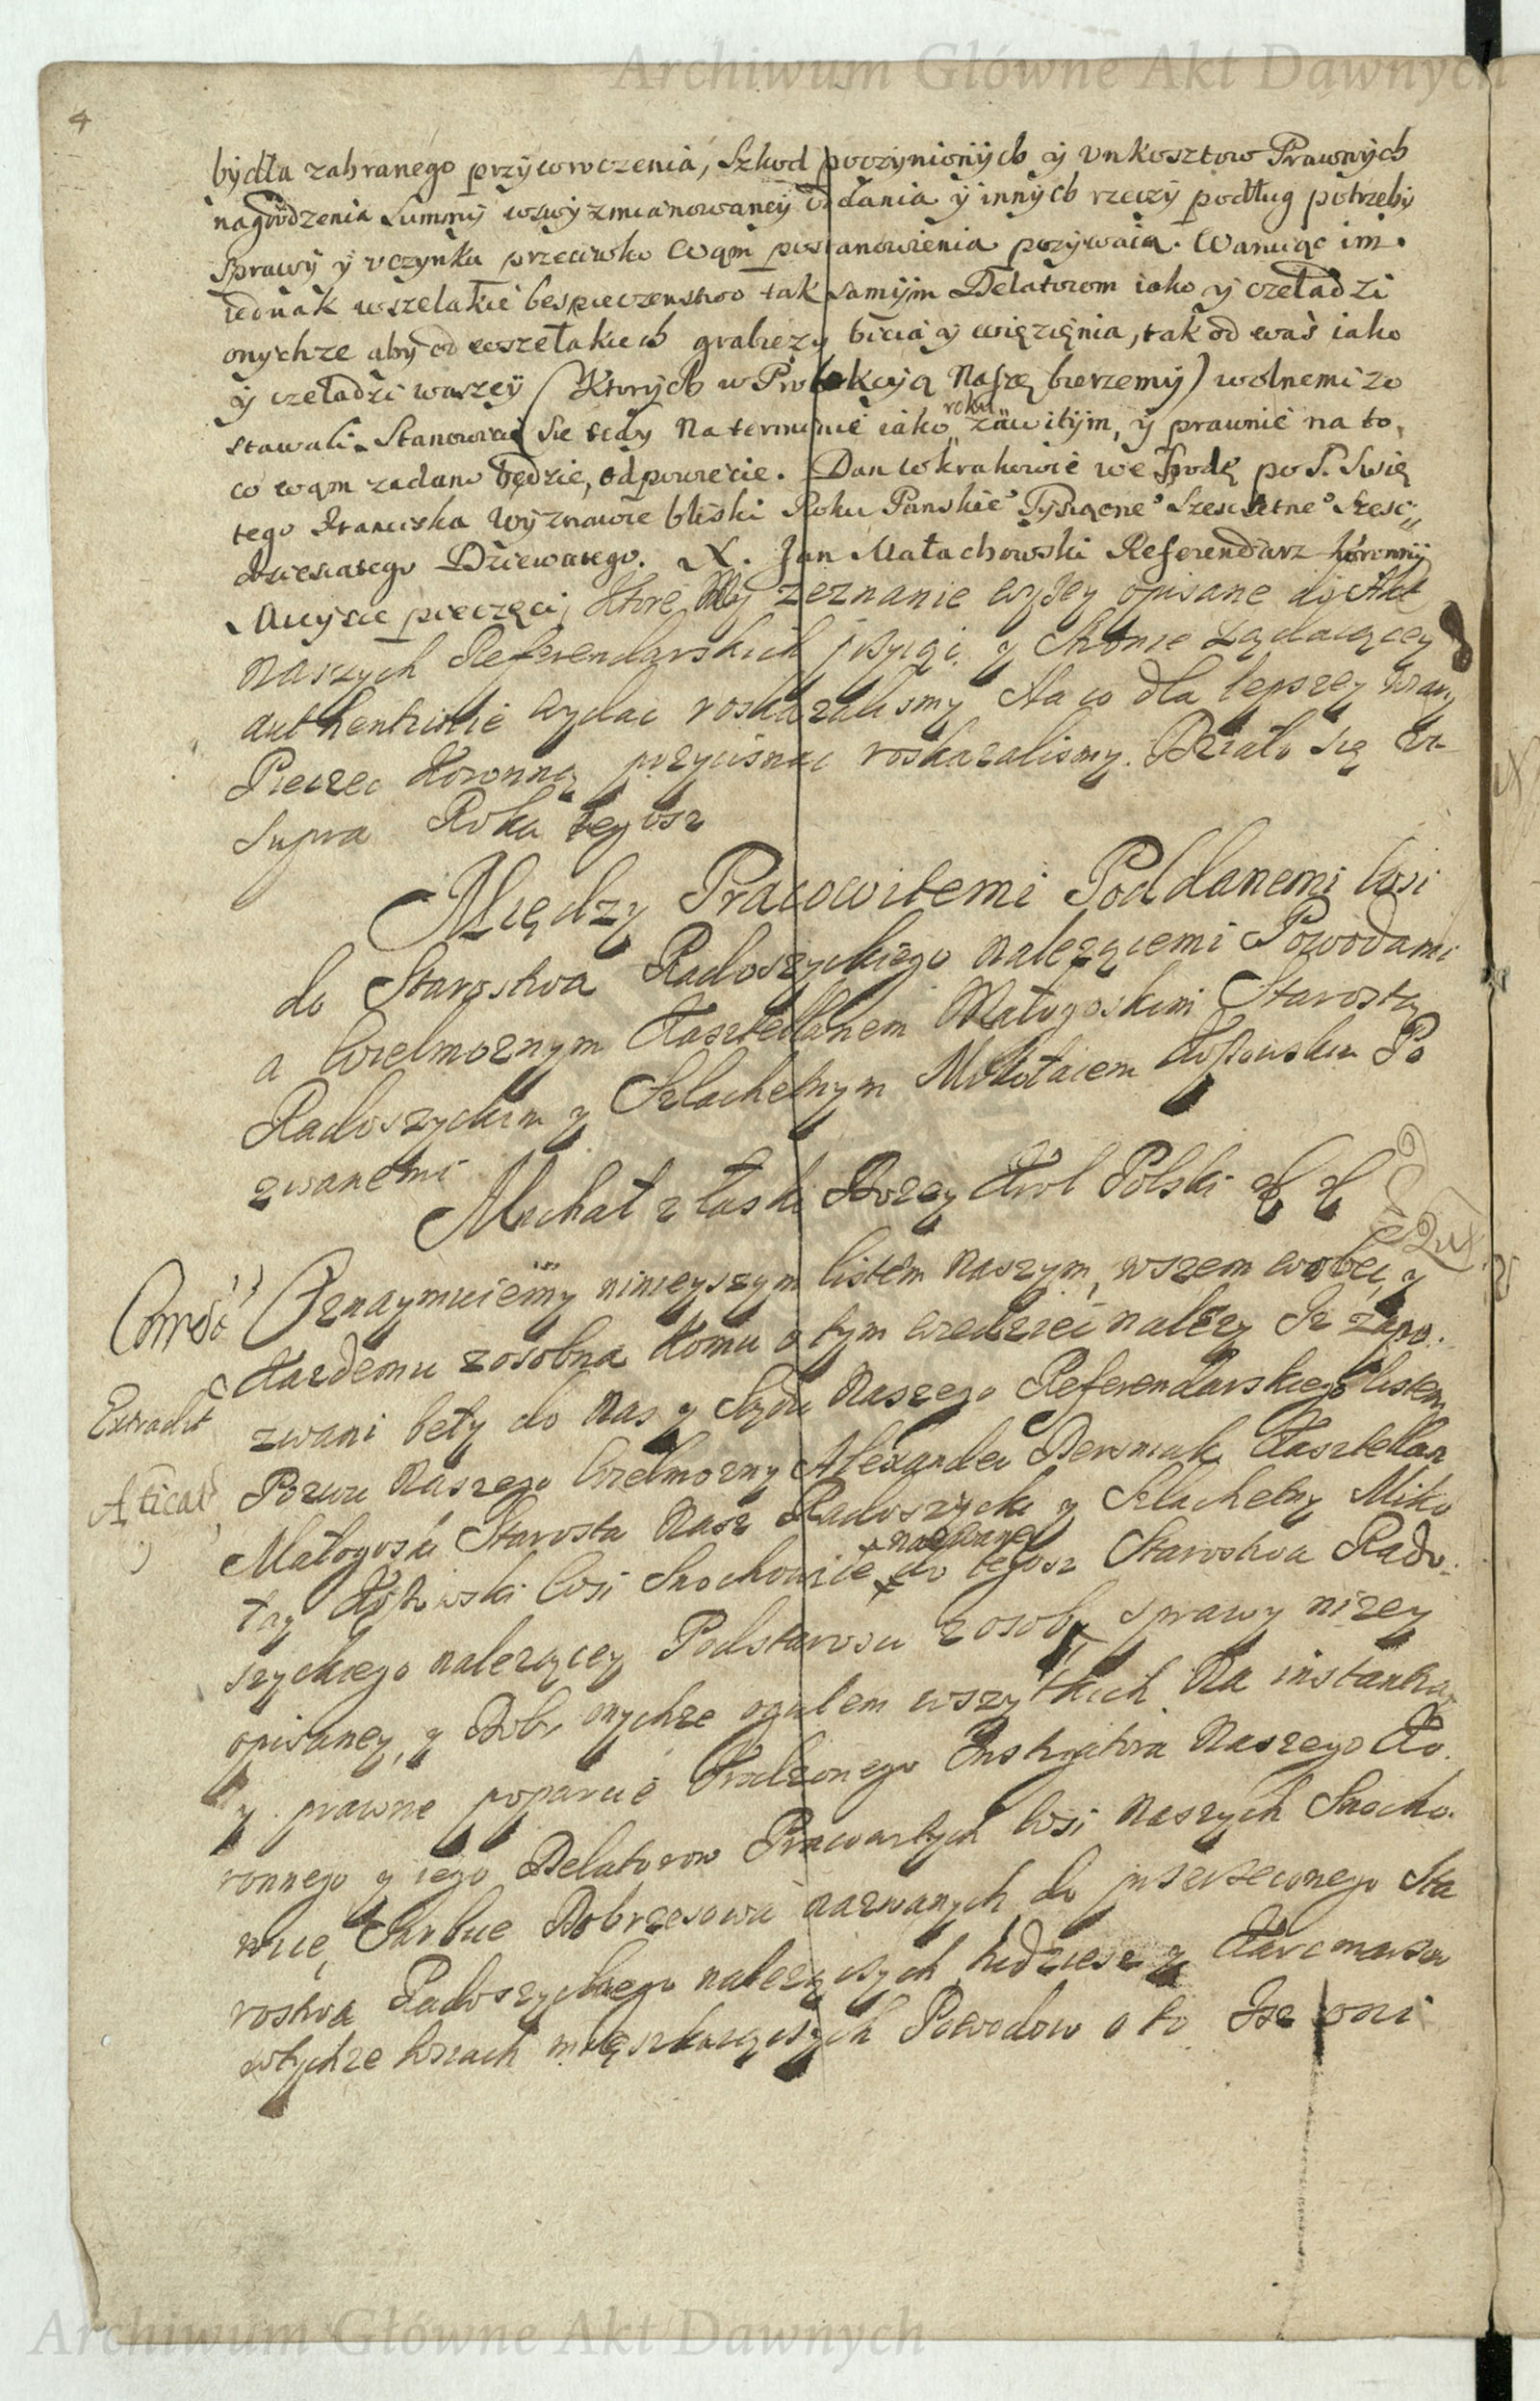 Archiwum Główne Akt Dawnych
4
bydła zabranego przywroczenia, Szkod poczynionych y Vnkosztow Prawnych
nagrodzenia Summy wzwyz mianowaney oddania y innych rzeczy podług potrzeby
Sprawy y vczynku przeciwko Wąm postanowienia pozywaią. Waruiąc im
iednak wszelakie bespieczenstwo tak samym Delatorom iako y czeładzi
onychze aby od wszelakich grabiezy bicia y więzięnia, tak od was iako
y czeladzi waszey (Ktorych w Protekcyią Naszę bierzemy) wolnemi zo
stawali. Stanowcie się tedy Na terminie iako roku zawitym, y prawnie na to,
co wąm zadano będzie, odpowiecie. Dan w krakowie we Srodę po S. Swię
tego Franciska Wyznawce bliski Roku Panskie° Tysiącne° Szescsetne° Szesc
dziesiatego Dziewiatego. X. Jan Małachowski Referendarz koronny
Mieysce pieczęci, Ktore My zeznanie wyzey opisane do Akt
Naszych Referendarskich przyiąć y Stronie Ządaiącey
authenticae wydac roskazalismy Na co dla lepszey wiary
Pieczec Koronną przycisnac roskazalismy. Działo się Vt
Supra Roku tegosz
Między Pracowitemi Poddanemi Wsi
do Starostwa Radoszyckiego nalezącemi Powodami
a Wielmoznym Kasztellanem Małogoskim Starostą
Radoszyckim y Szlachetnym Mikołaiem Po
zwanemi
Michał z łaski Bozey Krol Polski
Oznaymuiemy ninieyszym listem Naszym, wszem wobec, y
Kazdemu zosobna Komu o tym wiedziec nalezy Iz zapo.
Extradit
zwani beły do Nas y Sądu Naszego Referendarskiego listem
Pozwu Naszego Wielmozny Alexander Dersniak Kasztellan
Małogoski Starosta Nasz Radoszycki y Szlachetny Miko
łay Wsi Snochowice nazwaney do tegosz Starostwa Rado.
szyckiego nalezącey Podstarosci z osoby sprawy nizey
opisaney, y Dobr onychze ogułem wszytkich Na instantią
y prawne poparcie Urodzonego Instigatora Naszego Ko.
ronnego y iego Delatorow Pracowitych Wsi Naszych Snocho.
wice, Sarbice Dobrzesowa nazwanych do pszerzeczonego Sta
rostwa Radoszyckiego nalezących, ludziesz y Karcmarzow
wtychze wsiach mięszkaiących Powodow o to Isz oni
Archiwum Główne Akt Dawnych